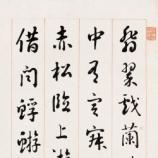 翡翠戲蘭
中有冥寂
赤松臨上游
借問蜉蝣